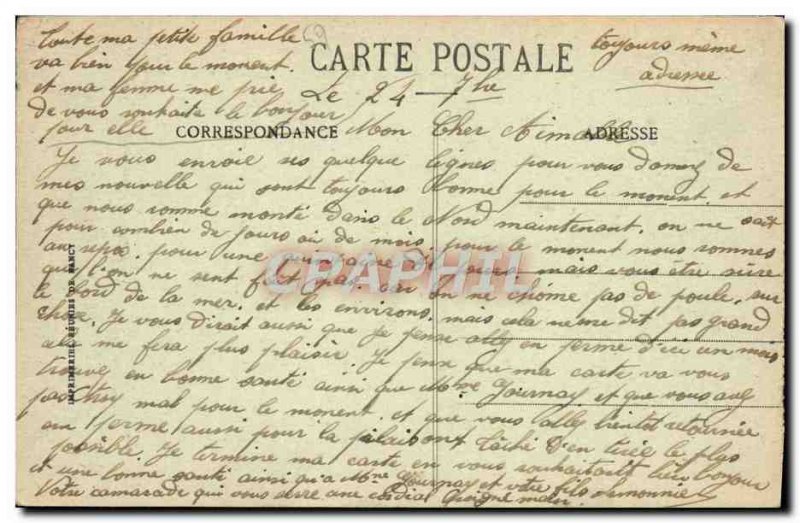 Toute ma petite famille
va bien pour le moment.
et ma femme me prie
de vous souhaite le bonjour
pour elle
69
CARTE POSTALE
toujours même
adresse
Le 24 7bre
CORRESPONDANCE
ADRESSE
Mon Cher Aimable
Je vous envoie ses quelque lignes pour vous donnez de
mes nouvelle qui sont toujours bonne pour le moment. et
que nous somme monté dans le Nord maintenant. on ne sait
pour combien de jours où de mois, pour le moment nous sommes
au repos. pour une quinzaine de jours, mais vous être sure
que l'on ne sent fait pas car on ne chôme pas de poule, sur
le bord de la mer, et les environs, mais cela ne me dit pas grand
chose. Je vous dirait aussi que je pense allez en perme d'ici un mois
cela me fera plus plaisir. Je pense que ma carte va vous
trouvé en bonne santé ainsi que Mme Journay et que vous avez
pas trop mal pour le moment. et que vous allez bientot retournée
en perme aussi pour la plaisont tâché d'en tirée le plus
possible. Je termine ma carte en vous souhaitant bien bonjour
et une bonne santé ainsi qu'a Mme Journay et votre fils
Votre camarade qui vous serre une cordial poigné main.
IMPRIMERIES RÉUNIES DE NANCY
CPAPHIL